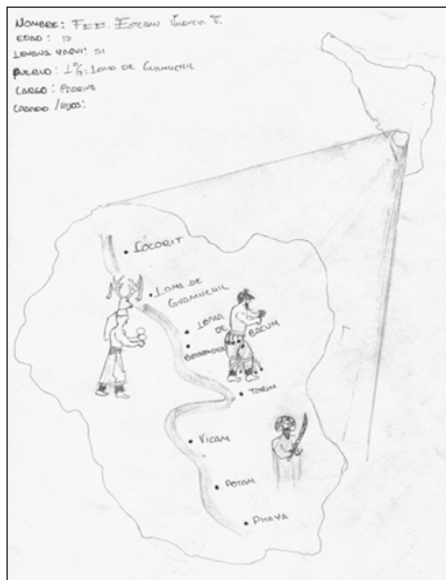 NOMBRE: ESTEBAN VALENCIA T.
EDAD:
LENGUA YAQUI: SI
PUEBLO: LOMA DE GUAMUCHIL
CARGO:
CASADO /HIJOS:
LOCORIT
LOMA DE
GUAMUCHIL
LOMA
DE
BACUM
TORIM
VICAM
POTAM
PITAYA